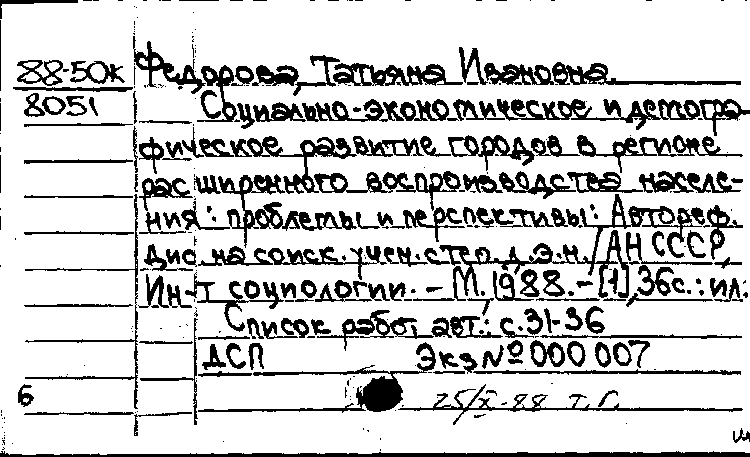 88-50к Федорова, Татьяна Ивановна.
8051 Социально-экономическое и демогра-
фическое развитие городов в регионе
расширенного воспроизводства населе-
ния: проблемы и перспективы: Автореф.
Дис. на соиск. учен. степ. д.э.н./АН СССР,
Ин-т социологии. - М., 1988. - [1], 36с.: ил.
Список работ авт.: с.31-36
ДСП Экз № 000 007
6 25/X-88 т.г.